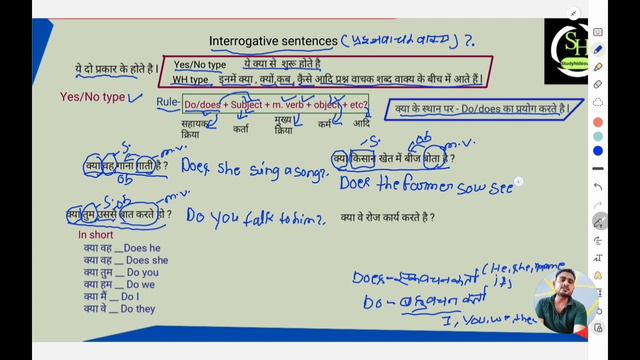 Interrogative sentences (प्रश्नवाचक वाक्य) ?.
SH
Studyhideout
ये दो प्रकार के होते है I
Yes/No type ये क्या से शुरू होते है
WH type इनमें क्या, क्यों,कब, कैसे आदि प्रश्न वाचक शब्द वाक्य के बीच में आते हैं I
Yes/No type
Rule- Do/does + Subject + m. verb + object + etc?
क्या के स्थान पर - Do/does का प्रयोग करते है I
सहायक क्रिया
कर्ता
मुख्य क्रिया
कर्म
आदि
S. m.v.
क्या वह गाना गाती है ?
ob
Does she sing a song?.
S. ob m.v.
क्या किसान खेत में बीज बोता है ?
Does the farmer sow see
S. ob m.v.
क्या तुम उससे बात करते हो ?
Do you talk to him?.
क्या वे रोज कार्य करते है ?
In short
क्या वह __Does he
क्या वह __ Does she
क्या तुम __ Do you
क्या हम __ Do we
क्या मैं __ Do I
क्या वे __ Do they
Does – एकवचन कर्ता (He, she, name it,)
Do – बहुवचन कर्ता
I, you, we, they